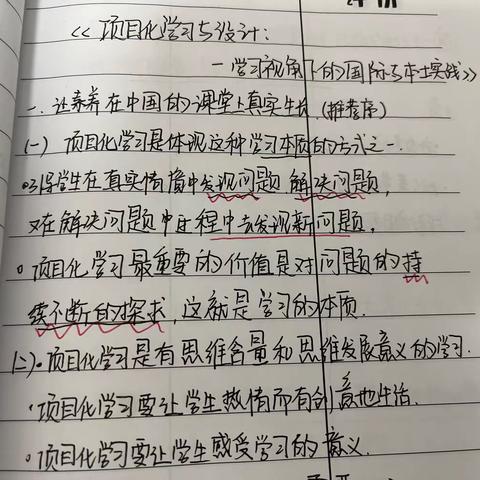 《项目化学习与设计：
—学习视角下的国际与本土实践》
一、让素养在中国的课堂上真实生长（推荐序）
（一）项目化学习是体现这种学习本质的方式之一.
引导学生在真实情境中发现问题 解决问题，
又在解决问题中过程中去发现新问题，
。项目化学习最重要的价值是对问题的持
续不断的探求，这就是学习的本质.
（二）。项目化学习是有思维含量和思维发展意义的学习.
·项目化学习要让学生热情而有创意地生活.
。项目化学习要让学生感受学习的意义.